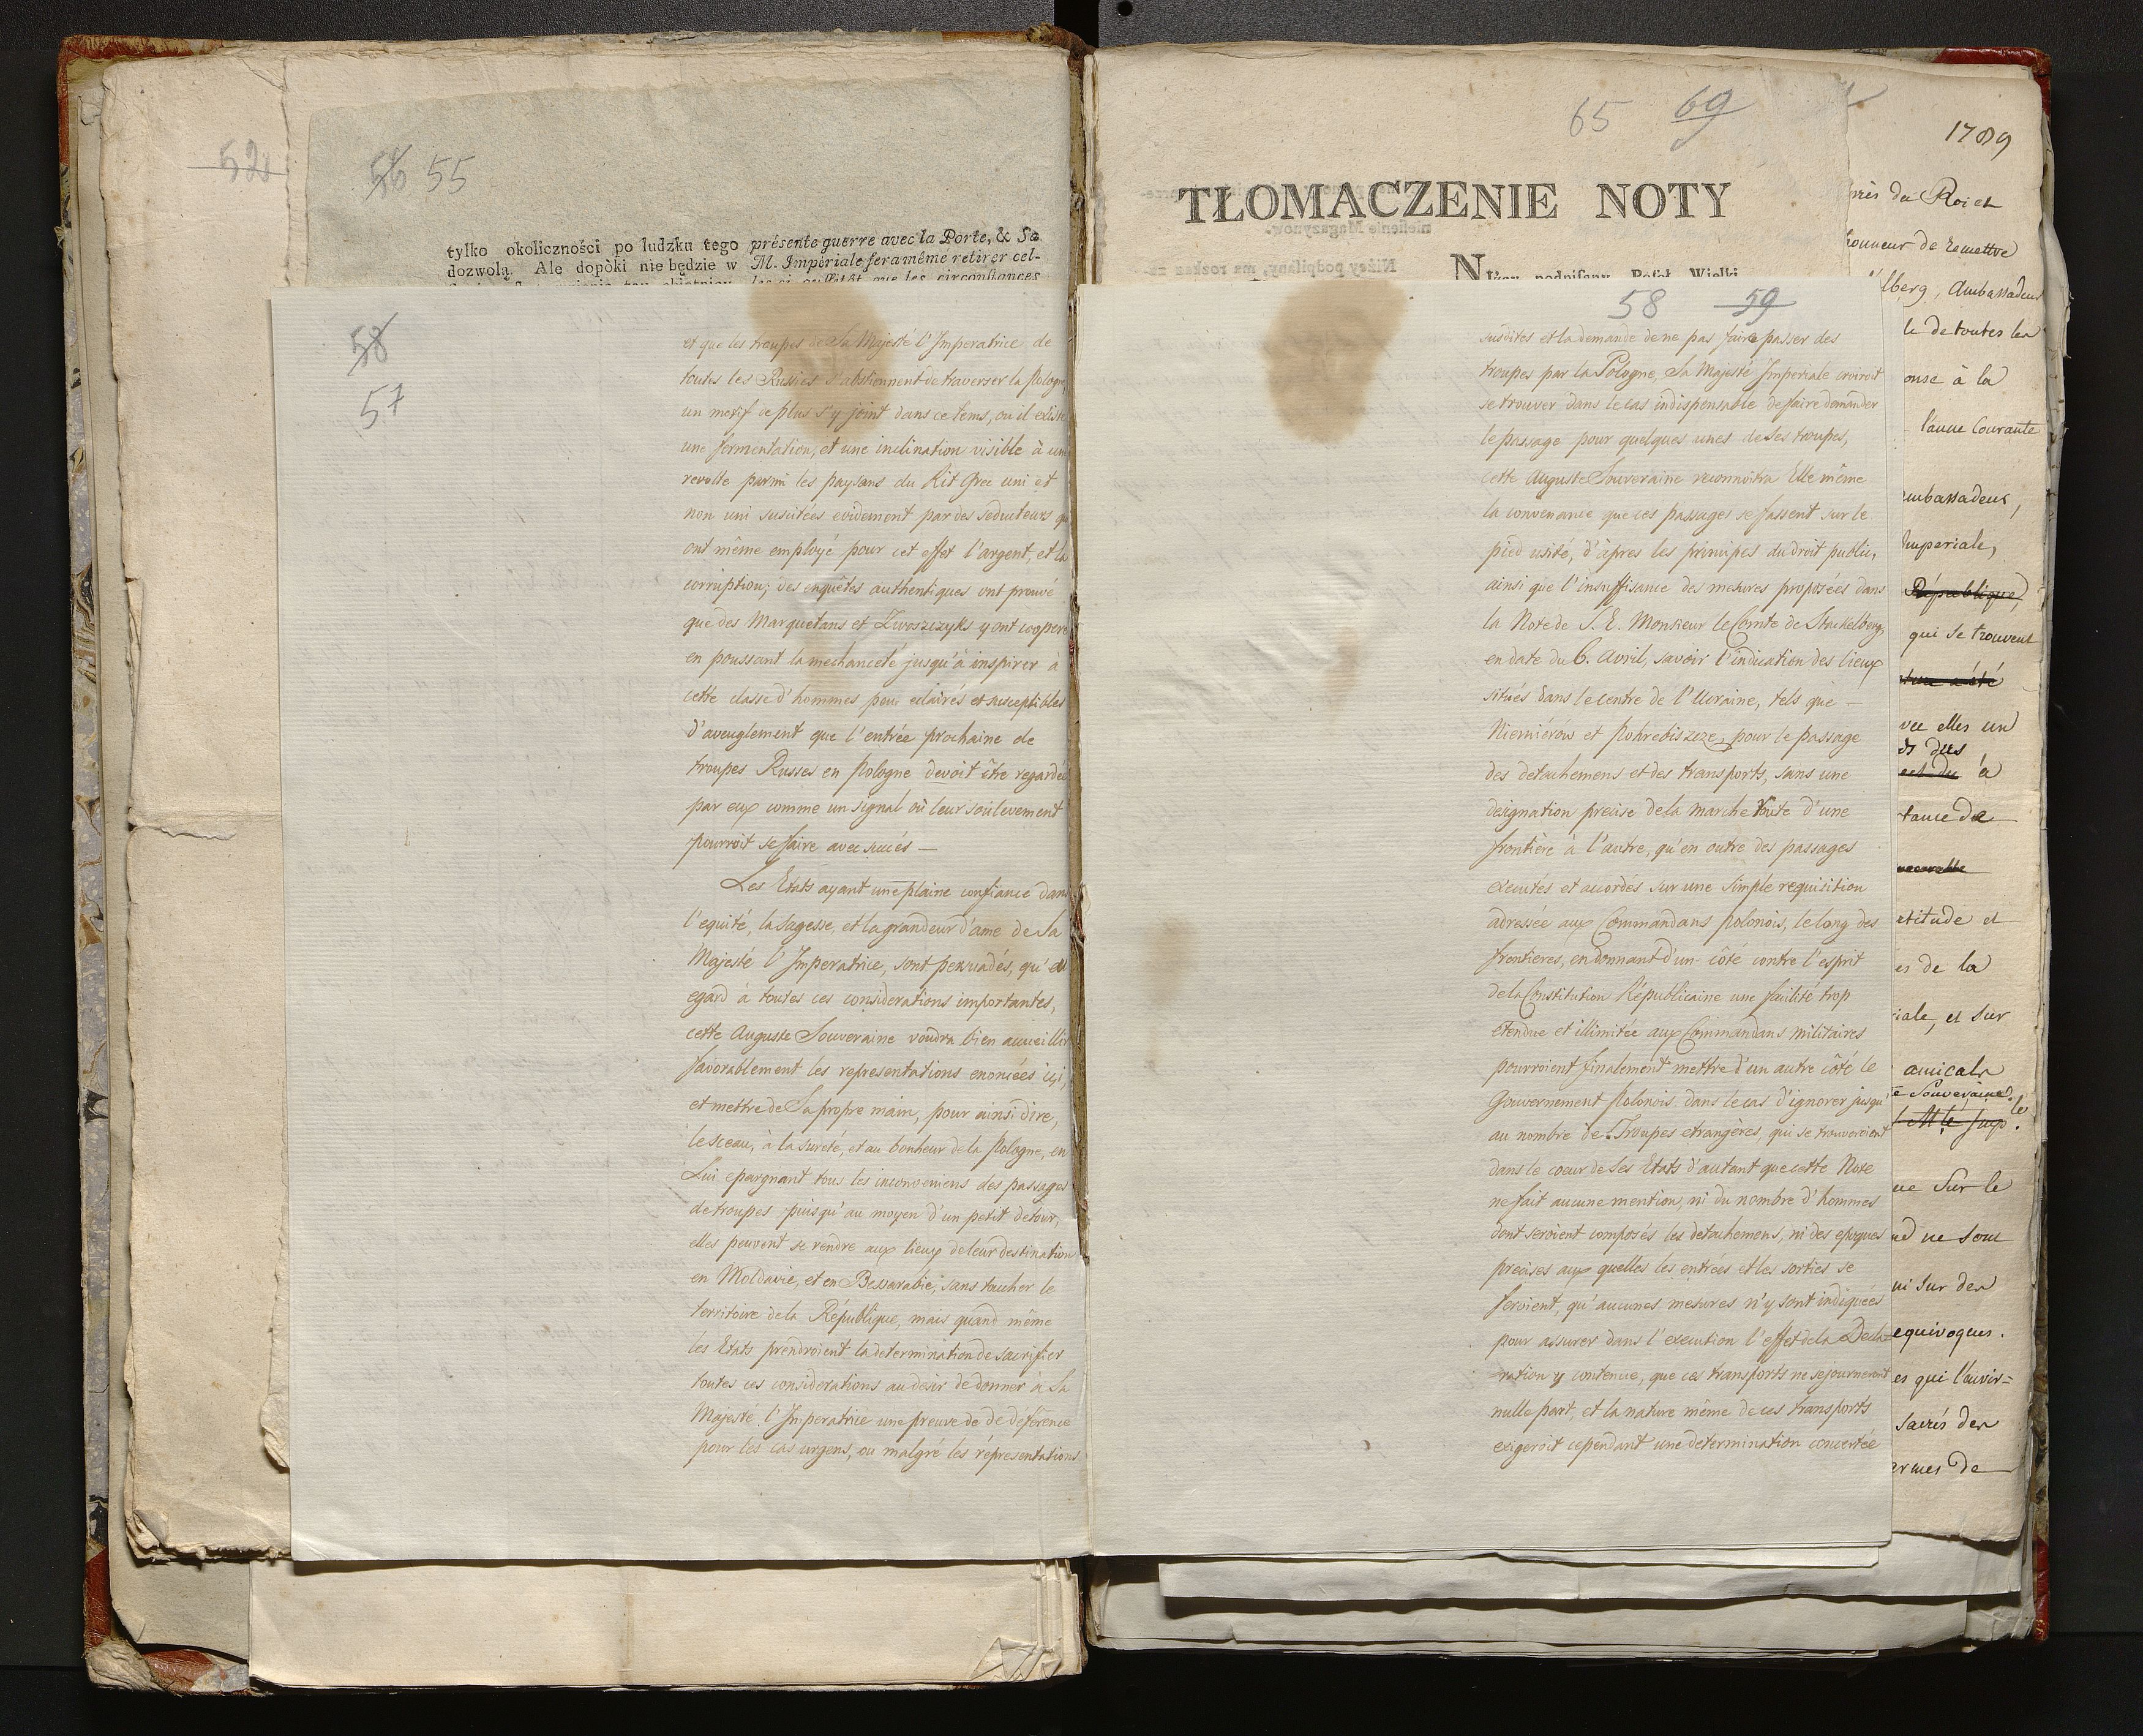 52
56 55
tylko okoliczności po ludzku tego
dozwolą. Ale dopòki nie będzie w
présente guerre avec la Porte, & Sa
M. Impériale fera même retirer cel-
les-ci aussitôt que les circonstances
58
57
et que les troupes de Sa Majesté l'Imperatrice de
toutes les Russies s'abstiennent de traverser la Pologne
un motif de plus s'y joint dans ce tems, ou il existe
une fermentation, et une inclination visible à une
revolte parmi les paysans du Rit Grec uni et
non uni suscitées evidement par des seducteurs qui
ont même employé pour cet effet l'argent, et la
corruption; des enquêtes authentiques ont prouvé
que des Marquetans et Zwoszczyks y ont cooperé
en poussant la mechanceté jusqu'à inspirer à
cette classe d'hommes peu eclairés et susceptibles
d'aveuglement que l'entrée prochaine de
troupes Russes en Pologne devoit être regardée
par eux comme un signal où leur soulevement
pourroit se faire avec succés —
Les Etats ayant une plaine confiance dans
l'equité, la sagesse, et la grandeur d'ame de Sa
Majesté l'Imperatrice, sont persuadés, qu'eu
egard à toutes ces considerations importantes,
cette Auguste Souveraine voudra bien accueillir
favorablement les representations enoncées ici,
et mettre de Sa propre main, pour ainsi dire,
le sceau, à la sureté, et au bonheur de la Pologne, en
Lui epargnant tous les inconveniens des passages
de troupes puisqu'au moyen d'un petit detour,
elles peuvent se rendre aux lieux de leur destination
en Moldavie, et en Bessarabie, sans toucher le
territoire de la République, mais quand même
les Etats prendroient la determination de sacrifier
toutes ces considerations au desir de donner à Sa
Majesté l'Imperatrice une preuve de de déférence
pour les cas urgens, ou malgré les répresentations
65 69
TŁOMACZENIE NOTY
Niżey podpisany Poseł Wielki
58 59
susdites et la demande de ne pas faire passer des
troupes par la Pologne, Sa Majesté Imperiale croiroit
se trouver dans le cas indispensable de faire demander
le passage pour quelques unes de Ses troupes,
cette Auguste Souveraine reconnoitra Elle même
la convenance que ces passages se fassent sur le
pied usité, d'âpres les principes du droit public,
ainsi que l'insuffisance des mesures proposées dans
la Note de S. E. Monsieur le Comte de Stackelberg,
en date du 6. Avril, savoir l'indication des lieux
situés dans le centre de l'Ucraine, tels que —
Niemiérów et Pohrebiszcze, pour le passage
des detachemens et des transports, sans une
designation precise de la marche route d'une
frontière à l'autre, qu'en outre des passages
executés et accordés sur une simple requisition
adressée aux Commandans polonois, le long des
frontieres, en donnant d'un côté contre l'esprit
de la Constitution Républicaine une facilité trop
etendue et illimitée aux Commandans militaires
pourroient finalement mettre d'un autre côté le
Gouvernement Polonois dans le cas d'ignorer jusqu'
au nombre de Troupes etrangères, qui se trouveroient
dans le coeur de Ses Etats d'autant que cette Note
ne fait aucune mention, ni du nombre d'hommes
dont seroient composés les detachemens, ni des epoques
precises aux quelles les entrées et les sorties se
feroient, qu'aucunes mesures n'y sont indiquées
pour assurer dans l'execution l'effet de la Decla=
ration y contenue, que ces transports ne sejourneront
nulle part, et la nature même de ces transports
exigeroit cependant une determination concertée
1789
près du Roi et
honneur de remettre
lberg, Ambassadeur
le de toutes les
onse à la
l'annee Courante
embassadeur,
Imperiale,
République,
qui se trouvent
vec elles un
dûs
est du à
tance de
ctitude et
es de la
iale, et sur
amicale
e Souveraine.
ue sur le
nd ne sont
ui sur des
equivoques.
es qui l'avoir=
sacrés des
ermes de